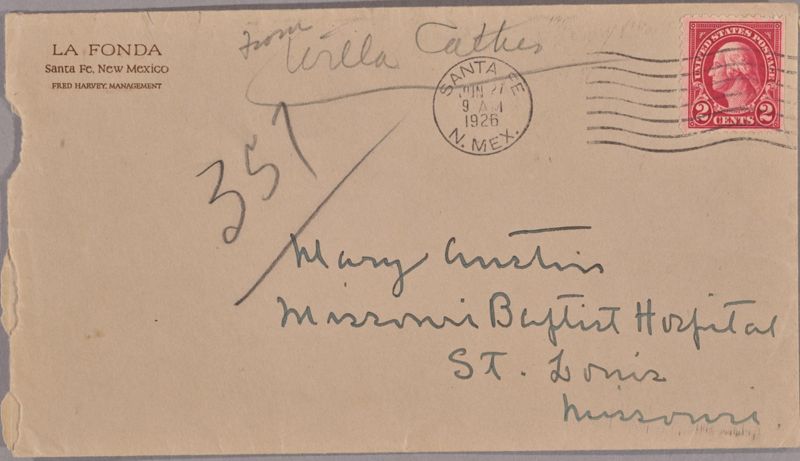 LA FONDA
Santa Fe, New Mexico
FRED HARVEY, MANAGEMENT
From
Willa Cather
SANTA FE
JUN 27
9 AM
1926
N. MEX.
UNITED STATES POSTAGE
2 CENTS 2
357
Mary Austin
Missouri Baptist Hospital
St. Louis
Missouri.